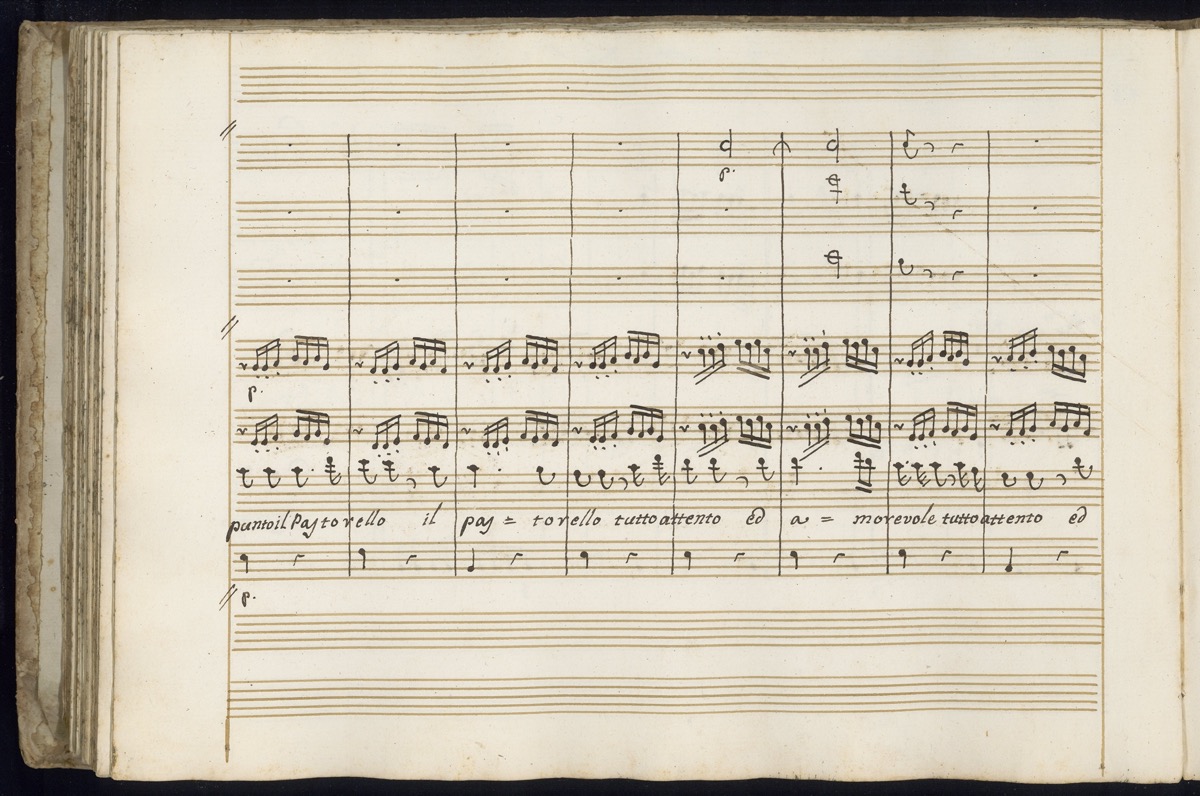 p.
p.
puntoil Pastorello il pas = torello tutto attento ed a = morevole tutto attento ed
p.